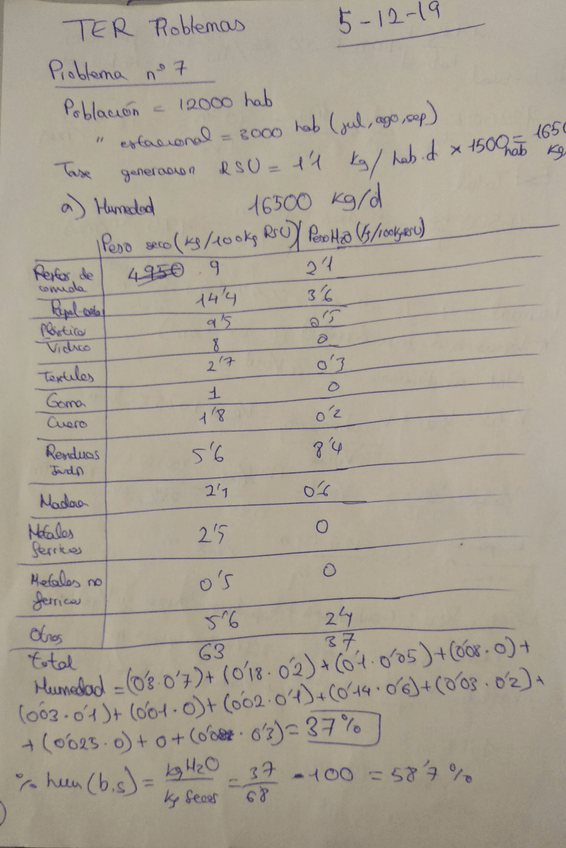 TER Problemas 5-12-19
Problema nº 7
Población = 12000 hab
" estacional = 3000 hab (jul, ago, sep)
Tasa generacion RSU = 1'1 kg/hab.d × 1500 hab = 1650 kg
a) Humedad 16500 kg/d
Peso seco (kg/100kg RSU) Peso H2O (kg/100kg RSU)
Restos de comida 4950 9 21
Papel-carton 14'4 3'6
Plástico 9'5 0'5
Vidrio 8 0
Textiles 2'7 0'3
Goma 1 0
Cuero 1'8 0'2
Residuos Jardin 5'6 8'4
Madera 2'4 0'6
Metales ferricos 2'5 0
Metales no ferricos 0'5 0
Otros 5'6 2'4
total 63 37
Humedad = (0'3·0'7) + (0'18·0'2) + (0'1·0'05) + (0'08·0) +
(0'03·0'1) + (0'01·0) + (0'02·0'1) + (0'14·0'6) + (0'03·0'2) +
+ (0'025·0) + 0 + (0'08·0'3) = 37%
% hum (b.s) = kg H2O / kg secos = 37/63 · 100 = 58'7 %